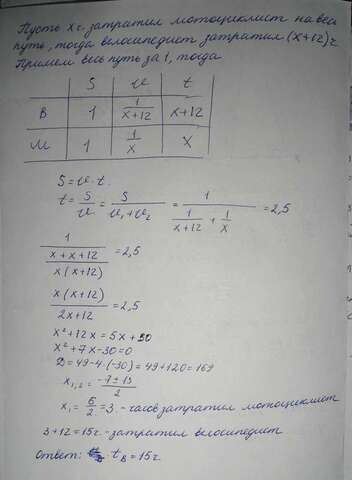 Пусть x ч затратил мотоциклист на весь
путь, тогда велосипедист затратил (x+12) ч
Примем весь путь за 1, тогда
S v t
В 1 1/(x+12) x+12
М 1 1/x x
S = v · t.
t = S/v = S/(v₁+v₂) = 1/(1/(x+12) + 1/x) = 2,5
1/((x+x+12)/(x(x+12))) = 2,5
x(x+12)/(2x+12) = 2,5
x²+12x = 5x+30
x²+7x-30=0
D=49-4·(-30)=49+120=169
x₁,₂ = (-7±13)/2
x₁ = 6/2 = 3 - часов затратил мотоциклист
3+12=15ч - затратил велосипедист
Ответ: t_в = 15ч